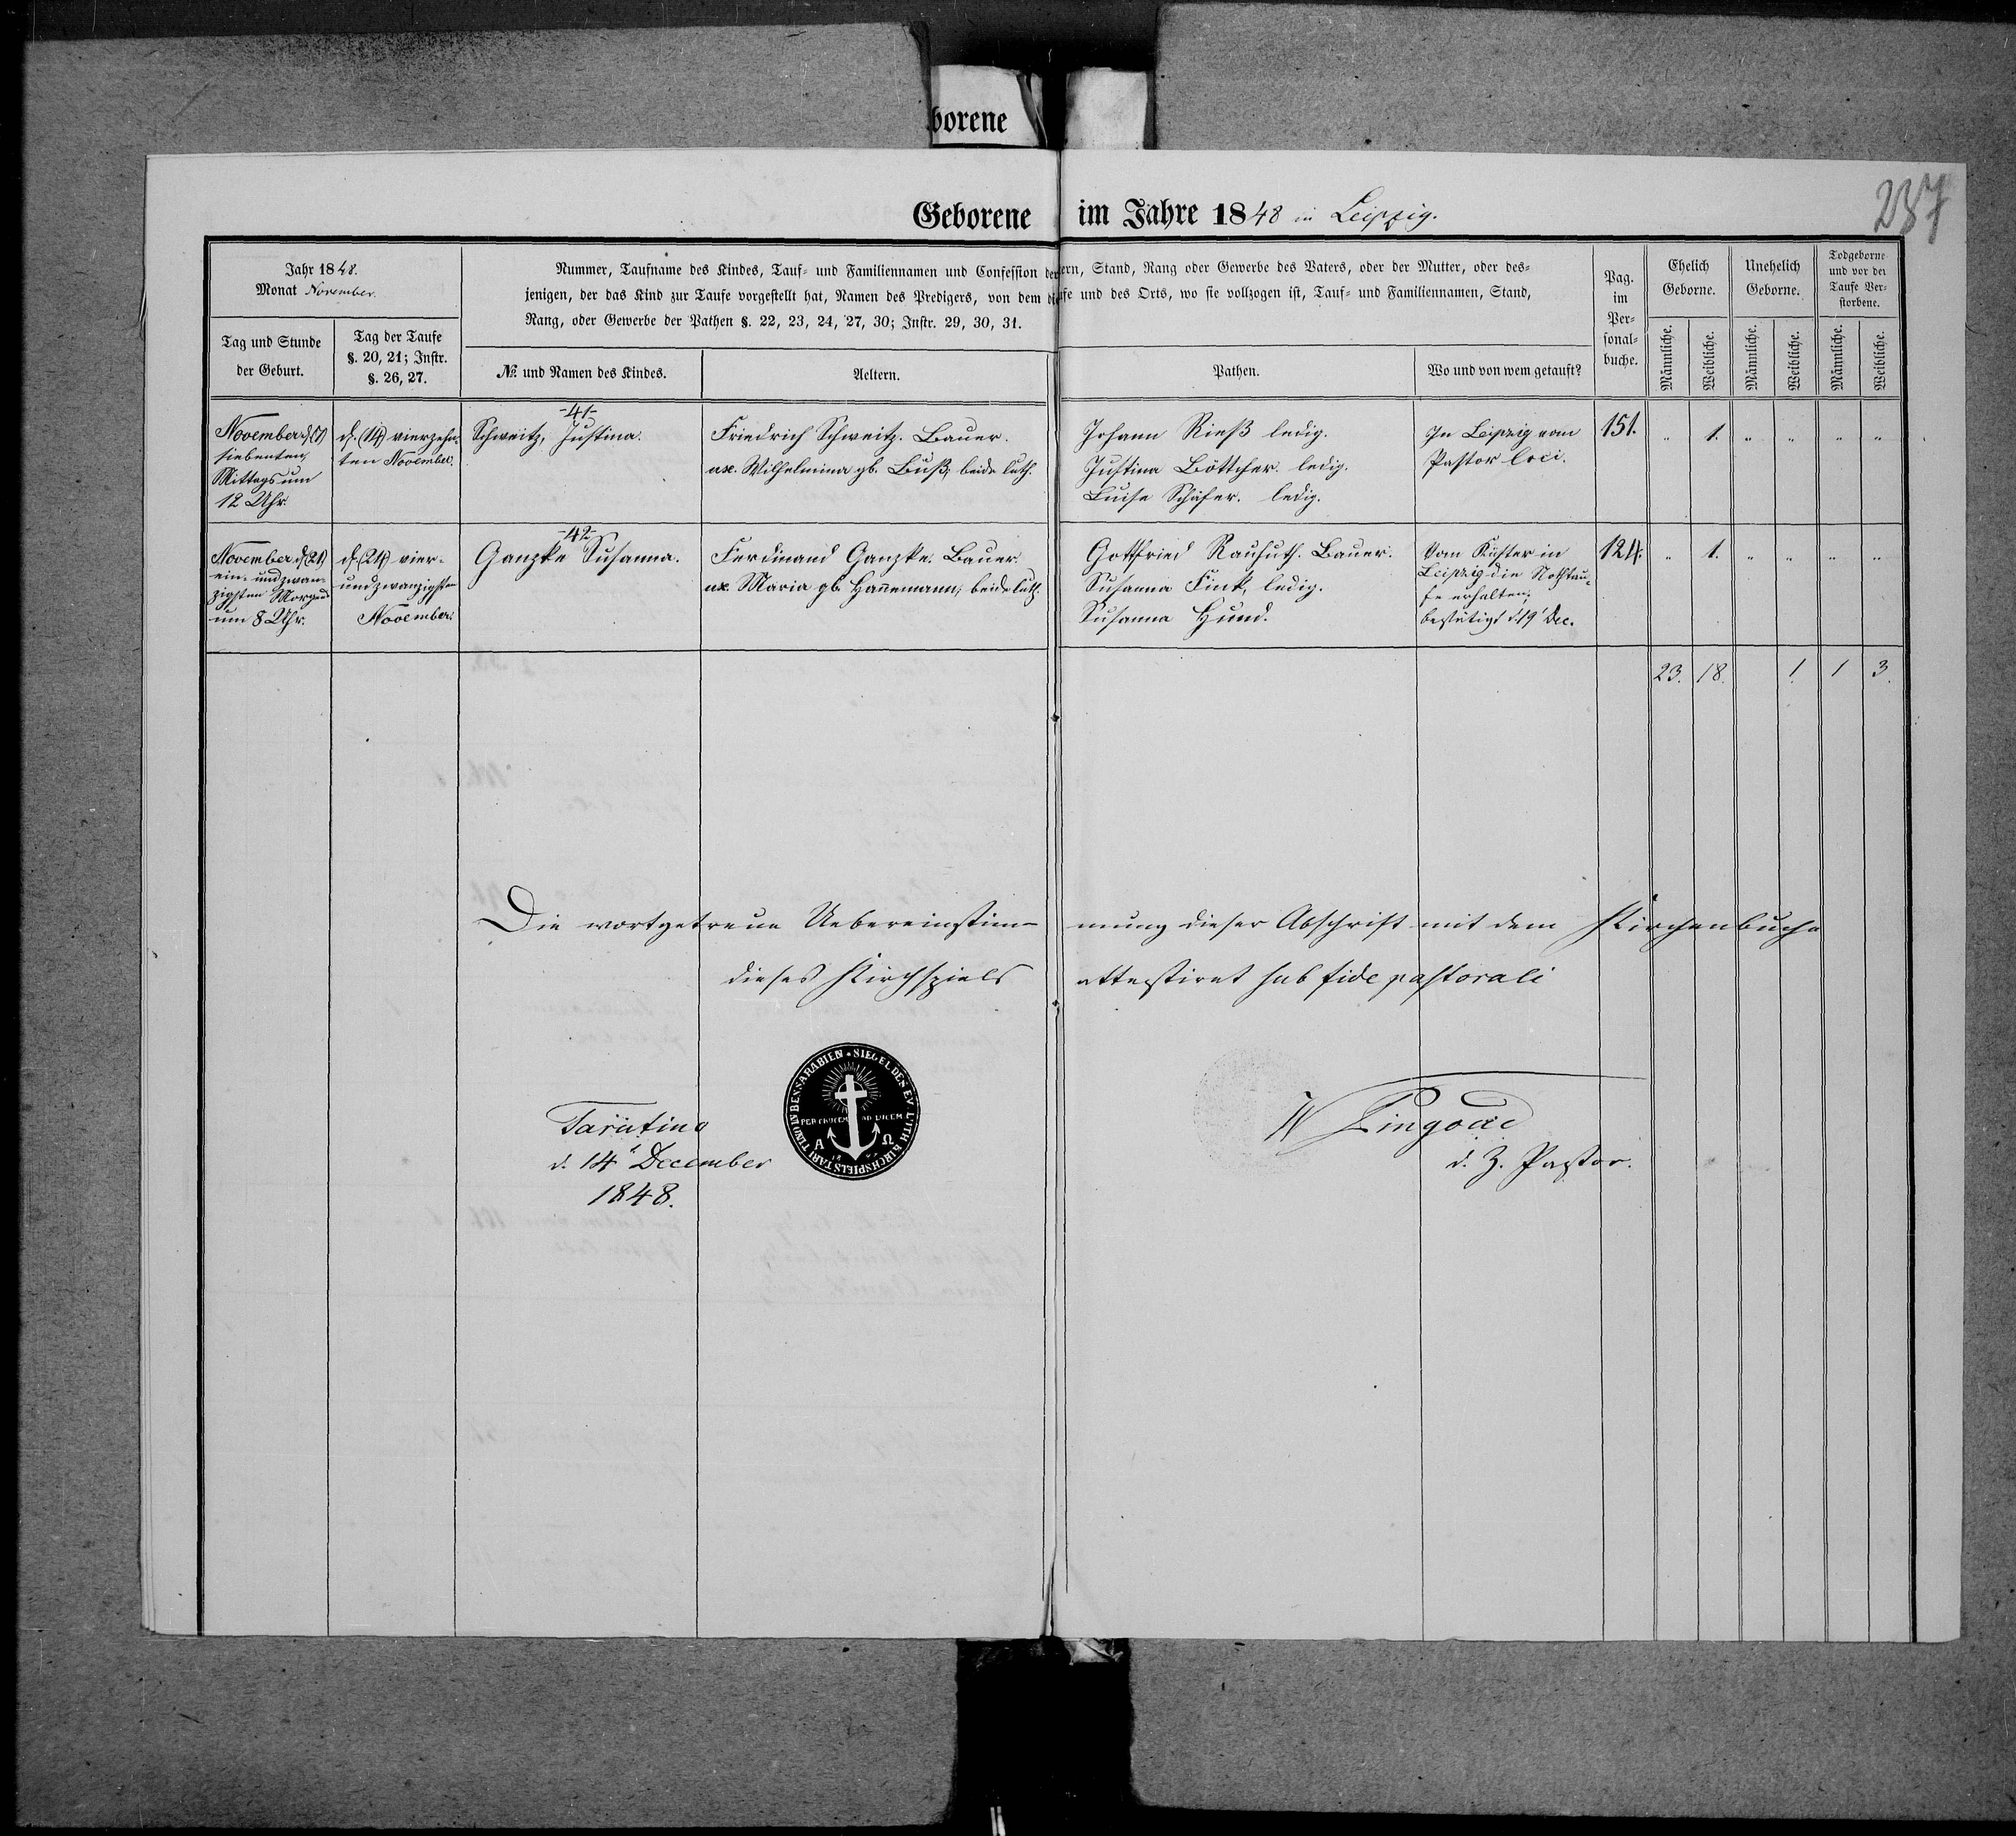 borene
237
Geborene im Jahre 1848 in Leipzig.
Jahr 1848.
Monat November.
Tag und Stunde
der Geburt.
Tag der Taufe
§. 20, 21; Instr.
§. 26, 27.
Nummer, Taufname des Kindes, Tauf- und Familiennamen und Confession der
jenigen, der das Kind zur Taufe vorgestellt hat, Namen des Predigers, von dem
Rang, oder Gewerbe der Pathen §. 22, 23, 24, 27, 30; Instr. 29, 30, 31.
№ und Namen des Kindes.
Aeltern.
ern, Stand, Rang oder Gewerbe des Vaters, oder der Mutter, oder des-
fe und des Orts, wo sie vollzogen ist, Tauf- und Familiennamen, Stand,
Pathen.
Wo und von wem getauft?
Pag.
im
Per-
sonal-
buche.
Ehelich
Geborne.
Unehelich
Geborne.
Todgeborne
und vor der
Taufe Ver-
storbene.
Männliche.
Weibliche.
Männliche.
Weibliche.
Männliche.
Weibliche.
November d. (7)
siebenten,
Mittags um
12 Uhr.
d. (14) vierzehn-
ten November.
-41-
Schweitz, Justina.
Friedrich Schweitz. Bauer.
ux. Wilhelmina gb. Buß, beide luth.
Johann Rieß ledig.
Justina Böttcher. ledig.
Luise Schäfer. ledig.
In Leipzig vom
Pastor loci.
151. " 1. " " " "
November d. (21)
ein- und zwan-
zigsten Morgens
um 8 Uhr.
d. (24) vier-
undzwanzigsten
November.
-42-
Ganzke Susanna.
Ferdinand Ganzke. Bauer.
ux. Maria gb. Hannemann, beide luth.
Gottfried Raufuth. Bauer.
Susanna Fink, ledig.
Susanna Hund.
Vom Küster in
Leipzig die Nothtau-
fe erhalten;
bestätigt d. 19 Dec.
124. " 1. " " " "
23. 18. 1. 1 3.
Die wortgetreue Uebereinstim- mung dieser Abschrift mit dem Kirchenbuche
dieses Kirchspiels attestiret sub fide pastorali
Tarutino
d. 14 December
1848.
SIEGEL DES EV. LUTH KIRCHSPIELS TARUTINO IN BESSARABIEN
PER CRUCEM AD LUCEM
A Ω
W Pingoud
d. Z. Pastor.